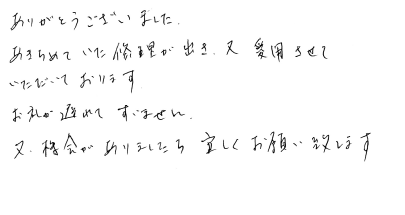 ありがとうございました.
あきらめていた修理が出き、又 愛用させて
いただいております.
お礼が遅れて すいません.
又、機会がありましたら 宜しくお願い致します